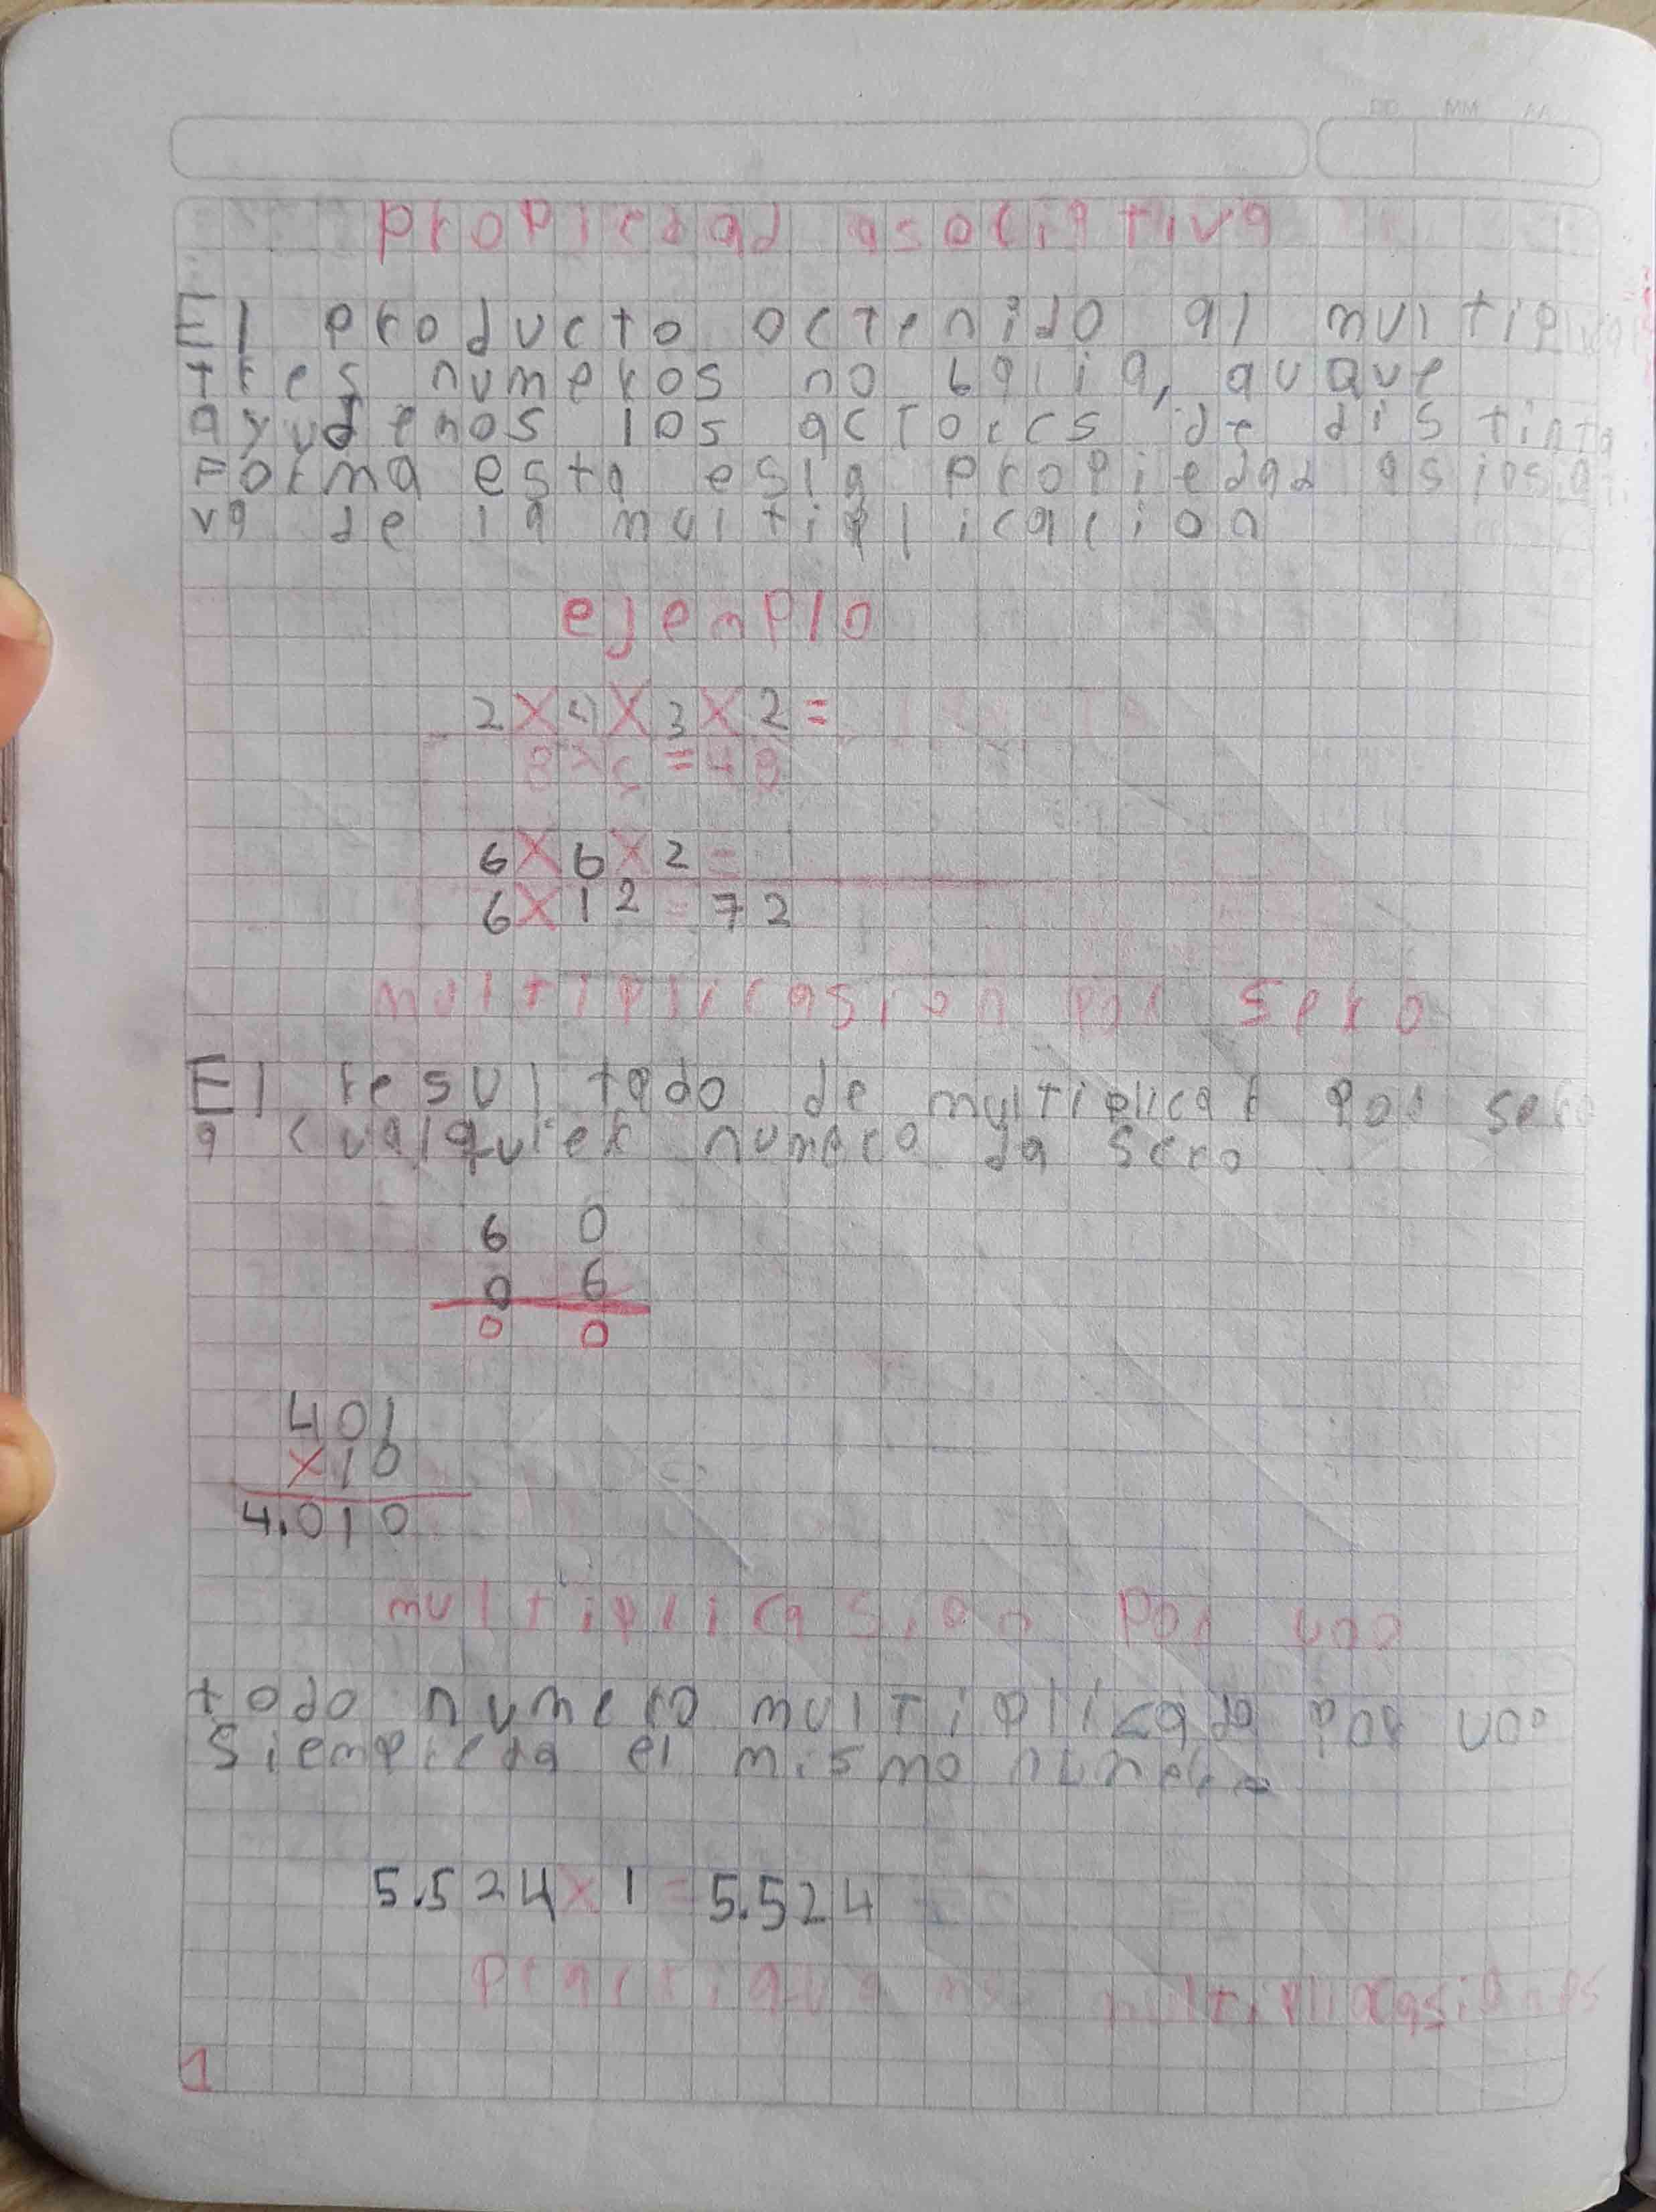 propiedad asociativa
El producto octenido al multiplicar
tres numeros no balia, auque
ayudemos los actores de distinta
Forma esta esla propiedad asiosiati
va de la multiplicacion
ejemplo
2 X 4 X 3 X 2 =
8 x 6 = 48
6 X 6 X 2 =
6 X 12 = 72
multiplicasion por sero
El resultado de multiplicar por sero
a cualquier numero da sero
6 0
0 6
0 0
401
X10
4.010
multiplicasion por uno
todo numero multiplicado por uno
siempre da el mismo numero
5.524 x 1 = 5.524
multiplicasiones
1